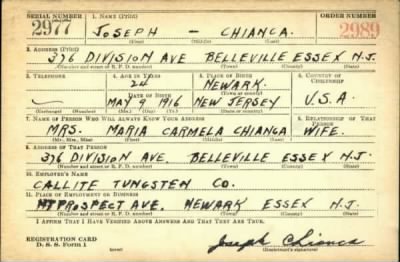 SERIAL NUMBER 1. NAME (Print) ORDER NUMBER
2977 JOSEPH - CHIANCA. 2989
(First) (Middle) (Last)
2. ADDRESS (Print)
376 DIVISION AVE BELLEVILLE ESSEX N.J.
(Number and street or R. F. D. number) (Town) (County) (State)
3. TELEPHONE 4. AGE IN YEARS 5. PLACE OF BIRTH 6. COUNTRY OF CITIZENSHIP
24 NEWARK.
DATE OF BIRTH (Town or county)
MAY 9 1916 NEW JERSEY U.S.A.
(Exchange) (Number) (Mo.) (Day) (Yr.) (State or country)
7. NAME OF PERSON WHO WILL ALWAYS KNOW YOUR ADDRESS 8. RELATIONSHIP OF THAT PERSON
MRS. MARIA CARMELA CHIANGA WIFE.
(Mr., Mrs., Miss) (First) (Middle) (Last)
9. ADDRESS OF THAT PERSON
376 DIVISION AVE. BELLEVILLE ESSEX N.J.
(Number and street or R. F. D. number) (Town) (County) (State)
10. EMPLOYER'S NAME
CALLITE TUNGSTEN CO.
11. PLACE OF EMPLOYMENT OR BUSINESS
MT PROSPECT AVE. NEWARK ESSEX N.J.
(Number and street or R. F. D. number) (Town) (County) (State)
I AFFIRM THAT I HAVE VERIFIED ABOVE ANSWERS AND THAT THEY ARE TRUE.
REGISTRATION CARD
D. S. S. FORM 1 (over) Joseph Chianca